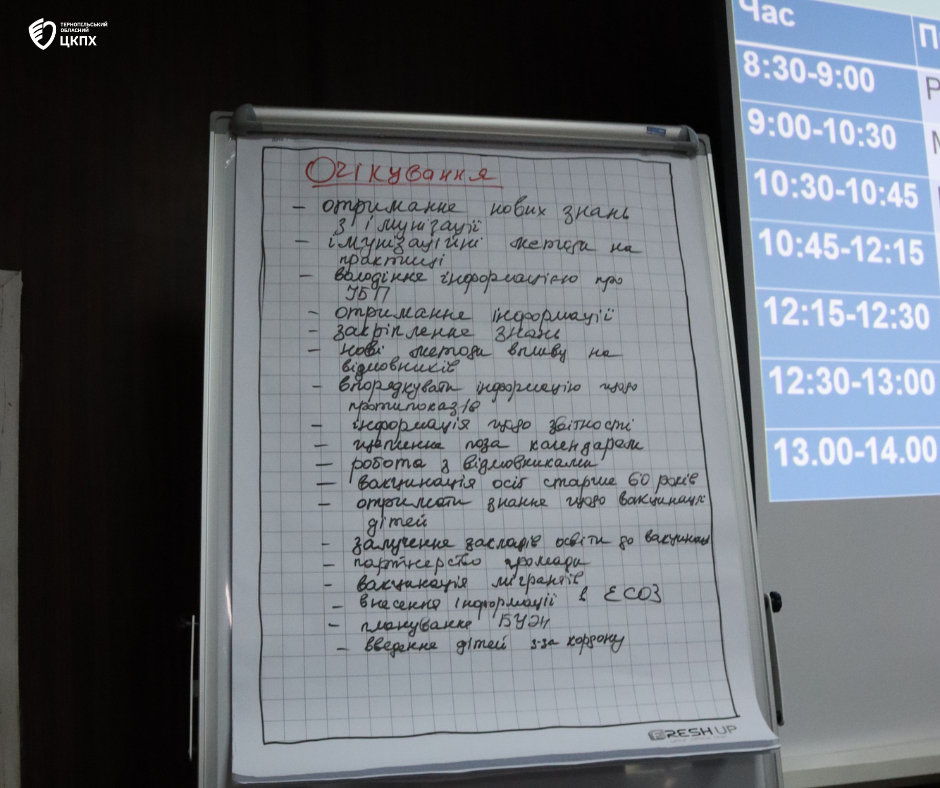 ТЕРНОПІЛЬСЬКИЙ
ОБЛАСНИЙ
ЦКПХ
Очікування
– отримання нових знань
з імунізації
– імунізаційні методи на
практиці
– володіння інформацією про
– отримання інформації
– закріплення знань
– нові методи впливу на
відмовників
– впорядкувати інформацію щодо
протипоказів
– інформація щодо звітності
– щеплення поза календарем
– робота з відмовниками
– вакцинація осіб старше 60 років
– отримати знання щодо вакцинації
дітей
– залучення закладів освіти до вакцинац
– партнерство громади
– вакцинація мігрантів
– внесення інформації в ЕСОЗ
– планування
– введення дітей з-за кордону
FRESH UP
Час
П
8:30-9:00
Р
9:00-10:30
10:30-10:45
10:45-12:15
12:15-12:30
12:30-13:00
13.00-14.00